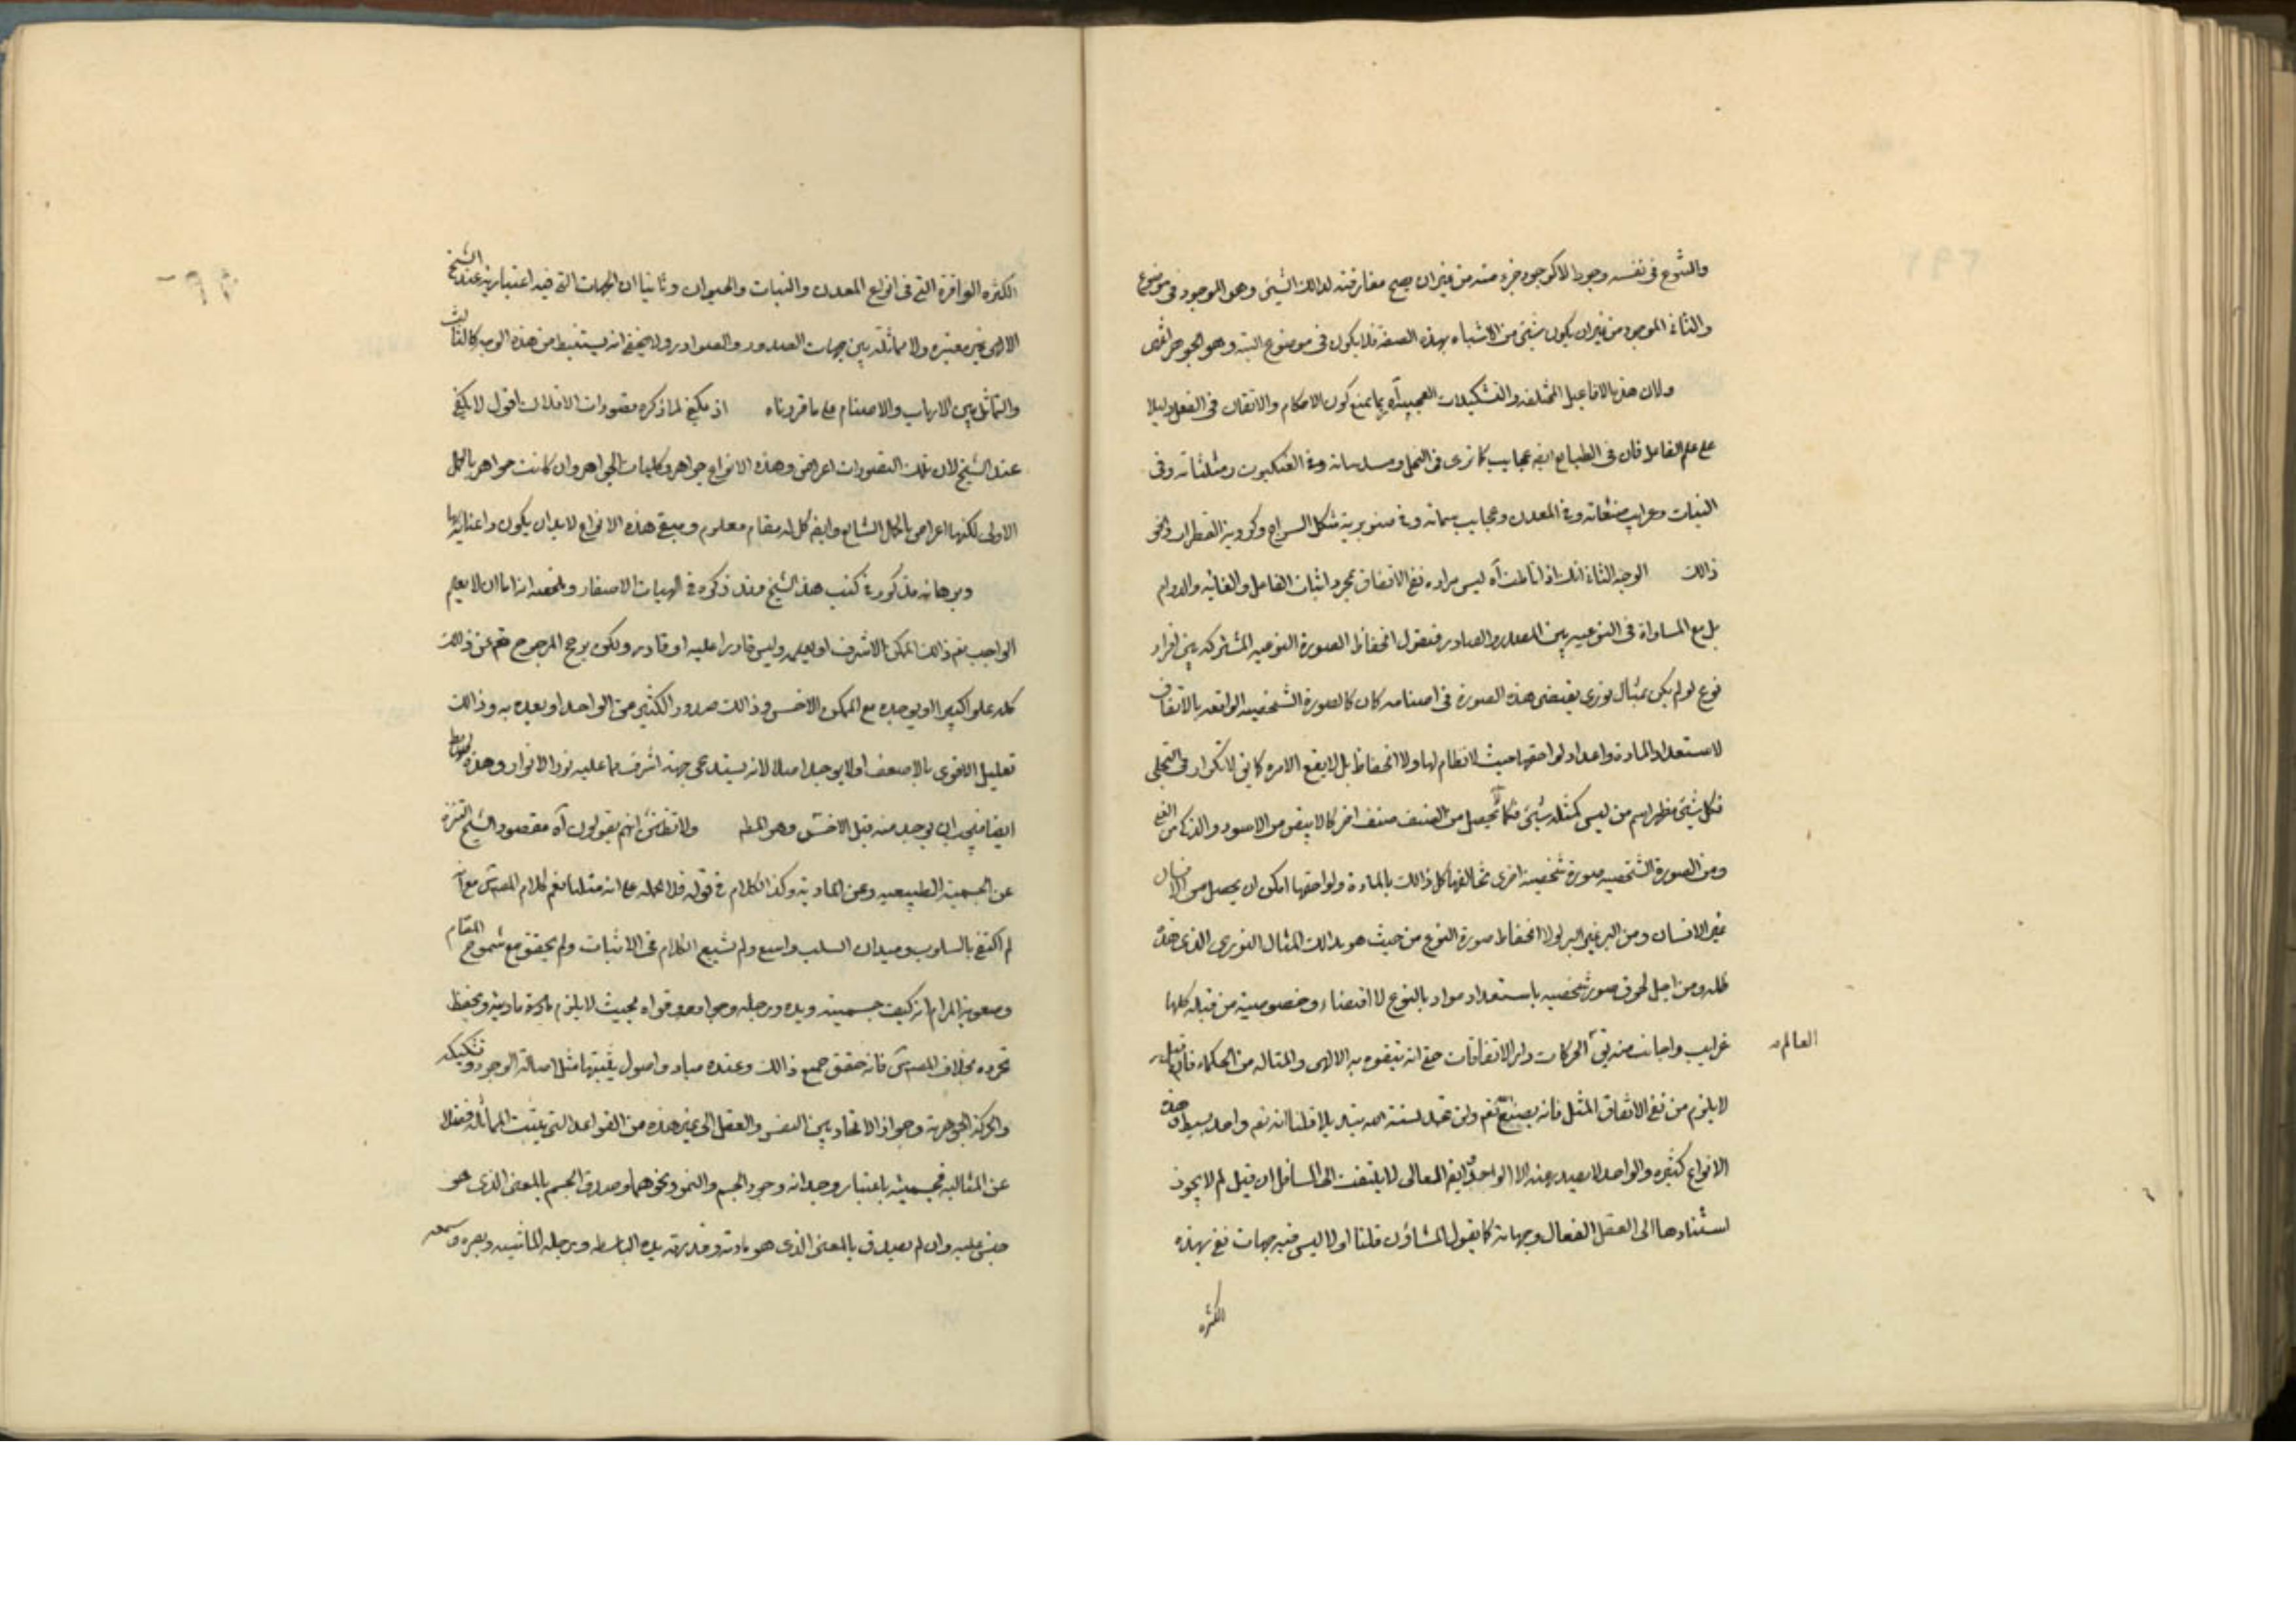 والشيوع في نفسه وجودا لا كوجود جزء منه من غير ان يصح مفارقته لذالك الشيئ وهو الموجود في موضوع
والثاني الموجود من غير ان يكون شيئ من الاشياء بهذه الصفة فلا يكون في موضوع البتة وهو الجوهر انتهى
ولان هذه الافاعيل المختلفه والتشكيلات العجيبه آه ربما يمنع كون الاحكام والاتقان في الفعل دليلا
على علم الفاعل فان في الطبايع ايضا عجايب كما ترى في النحل ومسدساته وفي العنكبوت ومثلثاته وفي
النبات وغرايب منشآته وفي المعدن وعجايب سماته وفي صنوبرية شكل السراج وكروية القطرات ونحو
ذالك الوجه الثاني انك اذا تاملت آه ليس مراده نفي الاتفاق بمجرد اثبات الفاعل والغائيه والدوام
بل مع المساواة في النوعيه بين المصدر والصادر فنقول انحفاظ الصورة النوعيه المشتركه بين افراد
نوع لو لم يكن بمثال نوري يقتضى هذه الصورة في اصنامه كان كالصورة الشخصيه الواقعه بالاتفاق
لاستعداد المادة واعداد لواحقها حيث لا نظام لها ولا انحفاظ بل لا يقع الامرة كما يق لا تكرار في التجلي
فكل شيئ مظهر اسم من ليس كمثله شيئ فكما يحصل من الصنف صنف اخر كالابيض من الاسود والذكي من الغبي
ومن الصورة الشخصيه صورة شخصية اخرى تخالفها كل ذالك بالمادة ولواحقها امكن ان يحصل من الانسان
غير الانسان ومن البر غير البر لولا انحفاظ صورة النوع من حيث هو بذالك المثال النوري الذي هذه
ظله ومن اجل لحوق صور شخصيه باستعداد مواد بالنوع لا اقتضاء وخصوصية من قبله كلها
غرايب واجانب منه يق العالم الحركات دار الاتفاقات حتى انه يتفوه به الالهى والمتاله من الحكماء فان قيل
لا يلزم من نفي الاتفاق المثل فانه بصنع الله نعم ولن تجد لسنة الله تبديلا قلنا انه نعم واحد بسيط وهذه
الانواع كثيره والواحد لا يصدر عنه الا الواحد وايضا العالى لا يلتفت الى السافل ان قيل لم لا يجوز
استنادها الى العقل الفعال وجهاته كما يقول المشاؤن قلنا اولا ليس فيه جهات تفي بهذه
الكثره
الكثره الوافرة التي في انواع المعدن والنبات والحيوان وثانيا ان الجهات التي فيه اعتباريه عند الشيخ
الالهى غير معتبره ولا مماثلة بين جهات الصدور والصوادر ولا يخفى انه يستنبط من هذه الوجه كالثالث
والتماثل بين الارباب والاصنام على ما قررناه اذ يكفى لما ذكره تصورات الافلاك اقول لا يكفى
عند الشيخ لان تلك التصورات اعراض وهذه الانواع جواهر وكليات الجواهر وان كانت جواهر بالحمل
الاولى لكنها اعراض بالحمل الشايع وايضا كل له مقام معلوم ومبقى هذه الانواع لابد ان يكون ذا عناية بها
وبرهانه مذكور في كتب هذا الشيخ وقد ذكره في الهيات الاسفار وملخصه انه اما ان لا يعلم
الواجب نعم ذالك الممكن الاشرف او يعلمه وليس قادرا عليه او قادر ولكن يرجح المرجوح نعم عن ذالك
كله علوا كبيرا او يوجده مع الممكن الاخس وذالك صدور الكثير من الواحد او بعده به وذالك
تعليل الاقوى بالاضعف او لا يوجد اصلا لانه يستدعى جهة اشرف مما عليه نور الانوار وهذه
ايضا فيجب ان يوجد منه قبل الاخس وهو المط ولا تظنن انهم يقولون آه مقصود الشيخ التنزه
عن الجسمية الطبيعيه وعن المادية وكذا الكلام في قوله فلا نحمله على انه مثلنا نعم كلام المص س مع آنه
لم اكتفى بالسلوب وميدان السلب واسع ولم يشبع الكلام في الاثبات ولم يحقق مع شموخ المقام
وصعوبة المرام انه كيف جسميته ويده ورجله وجوارحه وقواه بحيث لا يلزم مادة مادية ويحفظ
تجرده بخلاف المص س فانه حقق جميع ذالك وعنده مباد واصول يثبتها مثل اصالة الوجود وتشكيكه
والحركة الجوهرية وجواز الاتحاد بين النفس والعقل الى غير هذه من القواعد التي يثبت المماثلة فضلا
عن المثاليه فجسميته باعتبار وجدانه وجود الجسم والنمو ونحوهما وصدق الجسم بالمعنى الذي هو
جنس عليه وان لم يصدق بالمعنى الذي هو مادته وقدرته يده الباسطه ورجله الماشيه وبصره وسمعه